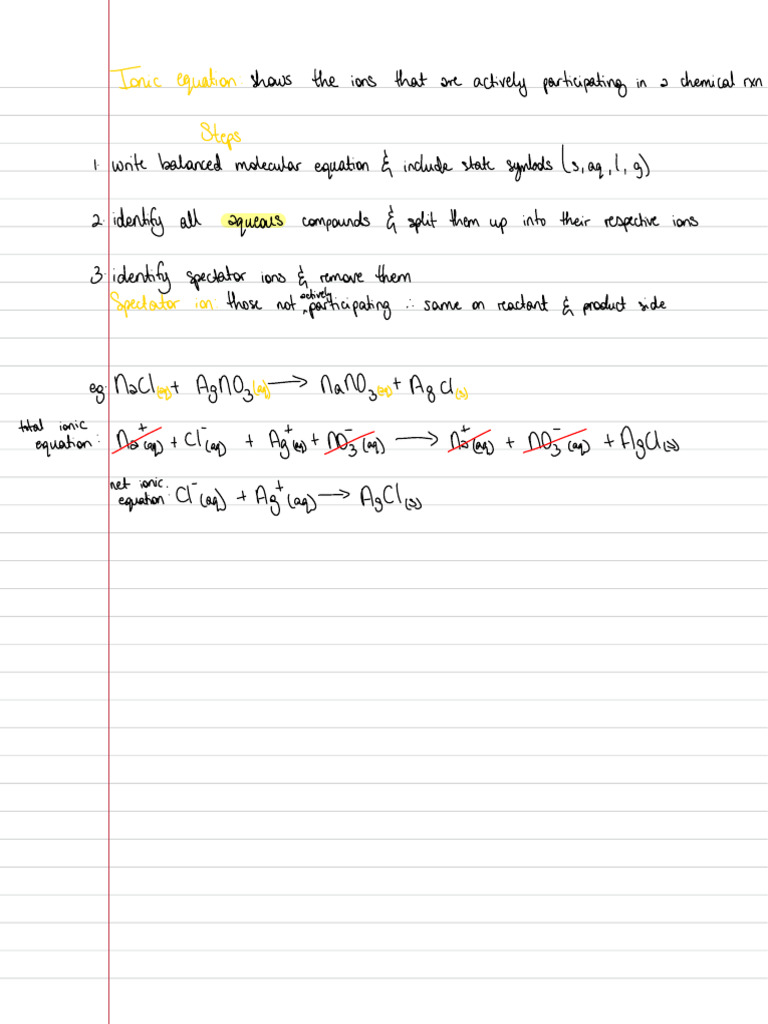 Ionic equation: shows the ions that are actively participating in a chemical rxn
Steps
1. write balanced molecular equation & include state symbols (s, aq, l, g)
2. identify all aqueous compounds & split them up into their respective ions
3. identify spectator ions & remove them
Spectator ion: those not actively participating ∴ same on reactant & product side
eg: NaCl(aq) + AgNO₃(aq) → NaNO₃(aq) + AgCl(s)
total ionic equation: Na⁺(aq) + Cl⁻(aq) + Ag⁺(aq) + NO₃⁻(aq) → Na⁺(aq) + NO₃⁻(aq) + AgCl(s)
net ionic equation: Cl⁻(aq) + Ag⁺(aq) → AgCl(s)